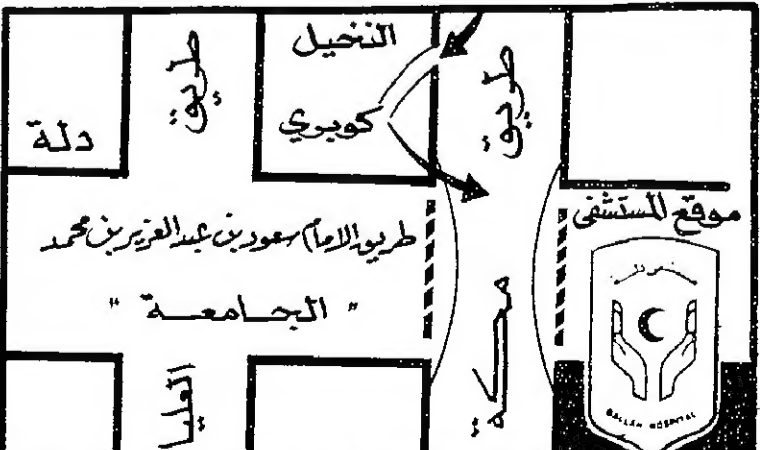 النخيل
طريق
طريق
كوبري
دلة
موقع المستشفى
طريق الامام سعود بن عبدالعزيز بن محمد
" الجامعة "
مكة
العليا
DALLAH HOSPITAL